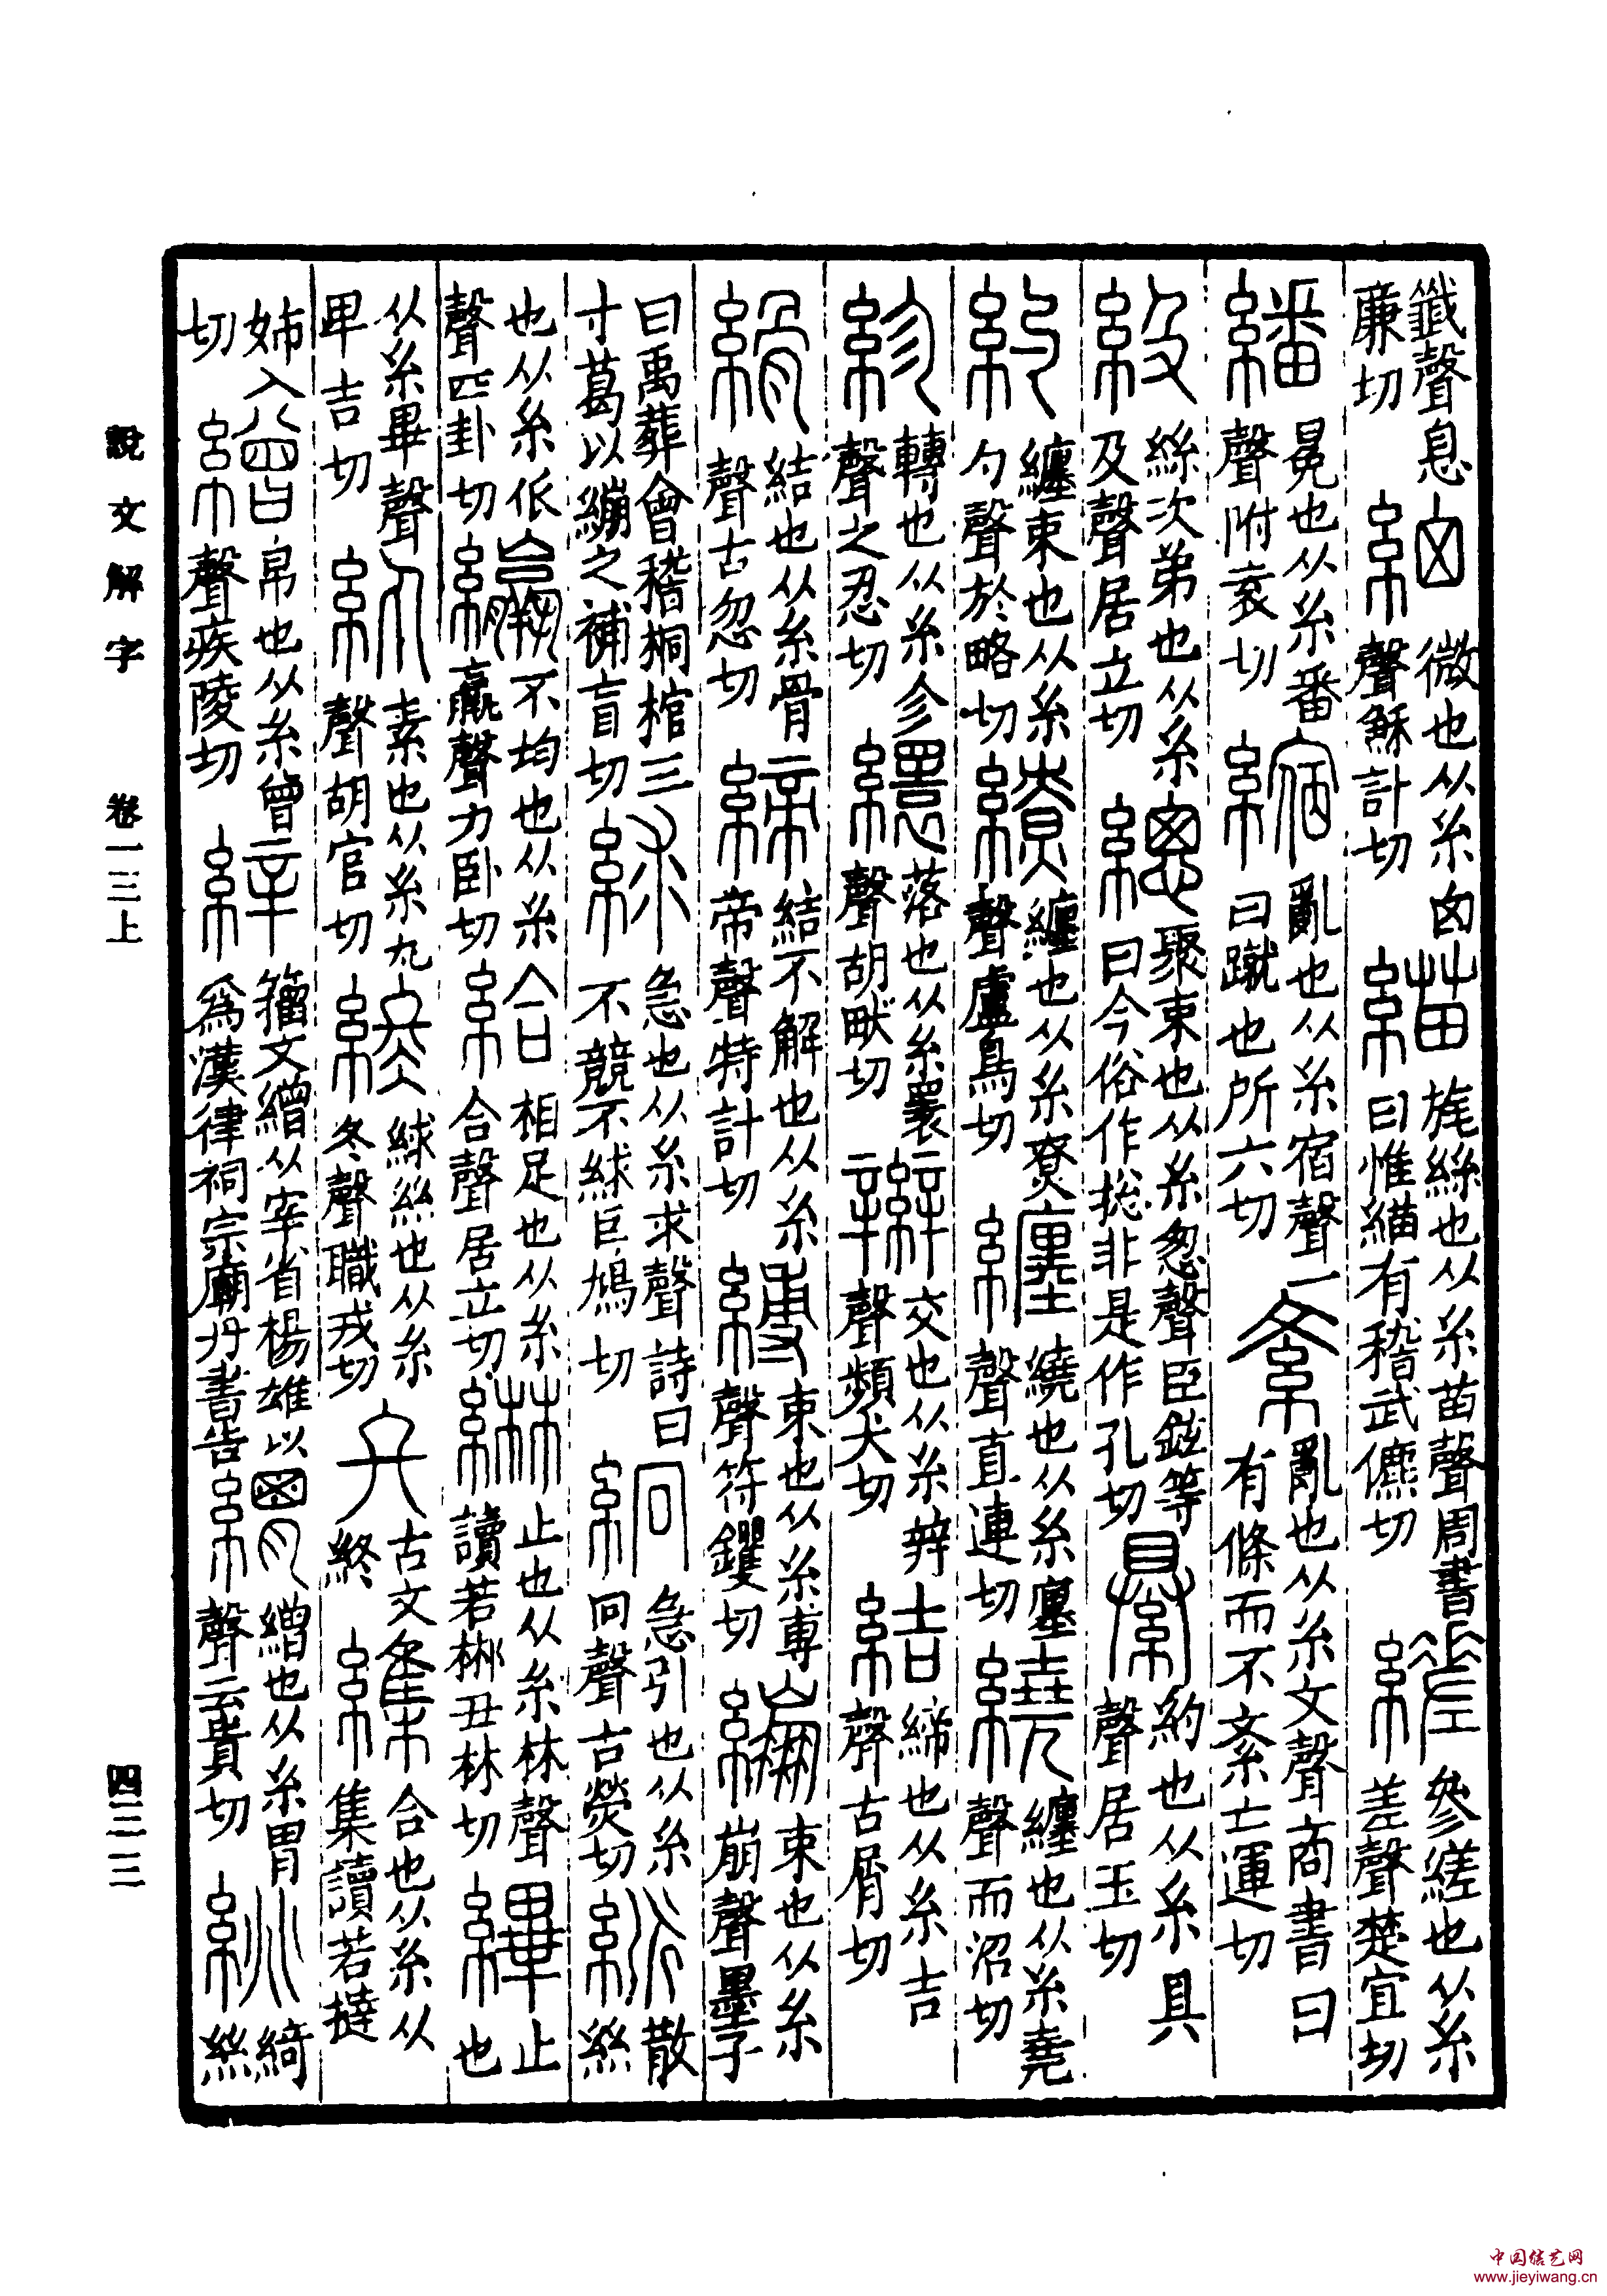 韱聲息廉切 細 微也从糸囟聲穌計切 緢 旄絲也从糸苗聲周書曰惟緢有稽武儦切 縒 參縒也从糸差聲楚宜切
繙 冕也从糸番聲附袁切 縮 亂也从糸宿聲一曰蹴也所六切 紊 亂也从糸文聲商書曰有條而不紊亡運切
級 絲次弟也从糸及聲居立切 總 聚束也从糸悤聲臣鉉等曰今俗作摠非是作孔切 約也从糸具聲居玉切
約 纏束也从糸勺聲於略切 繚 纏也从糸尞聲盧鳥切 纏 繞也从糸廛聲直連切 繞 纏也从糸堯聲而沼切
紾 轉也从糸㐱聲之忍切 繯 落也从糸睘聲胡畎切 辮 交也从糸辡聲頻犬切 結 締也从糸吉聲古屑切
縎 結也从糸骨聲古忽切 締 結不解也从糸帝聲特計切 縛 束也从糸尃聲符钁切 繃 束也从糸崩聲墨子
曰禹葬會稽桐棺三寸葛以繃之補盲切 絿 急也从糸求聲詩曰不競不絿巨鳩切 絅 急引也从糸冋聲古熒切 散絲
也从糸𠂢聲匹卦切 不均也从糸羸聲力臥切 給 相足也从糸合聲居立切 綝 止也从糸林聲讀若郴丑林切 縪 止也
从糸畢聲卑吉切 紈 素也从糸丸聲胡官切 終 絿絲也从糸冬聲職戎切 古文終 合也从糸从集讀若捷
姊入切 繒 帛也从糸曾聲疾陵切 籒文繒从宰省楊雄以爲漢律祠宗廟丹書告 緭 繒也从糸胃聲云貴切 絩 綺絲
說文解字 卷一三上 四三三
中国结艺网
www.jieyiwang.cn